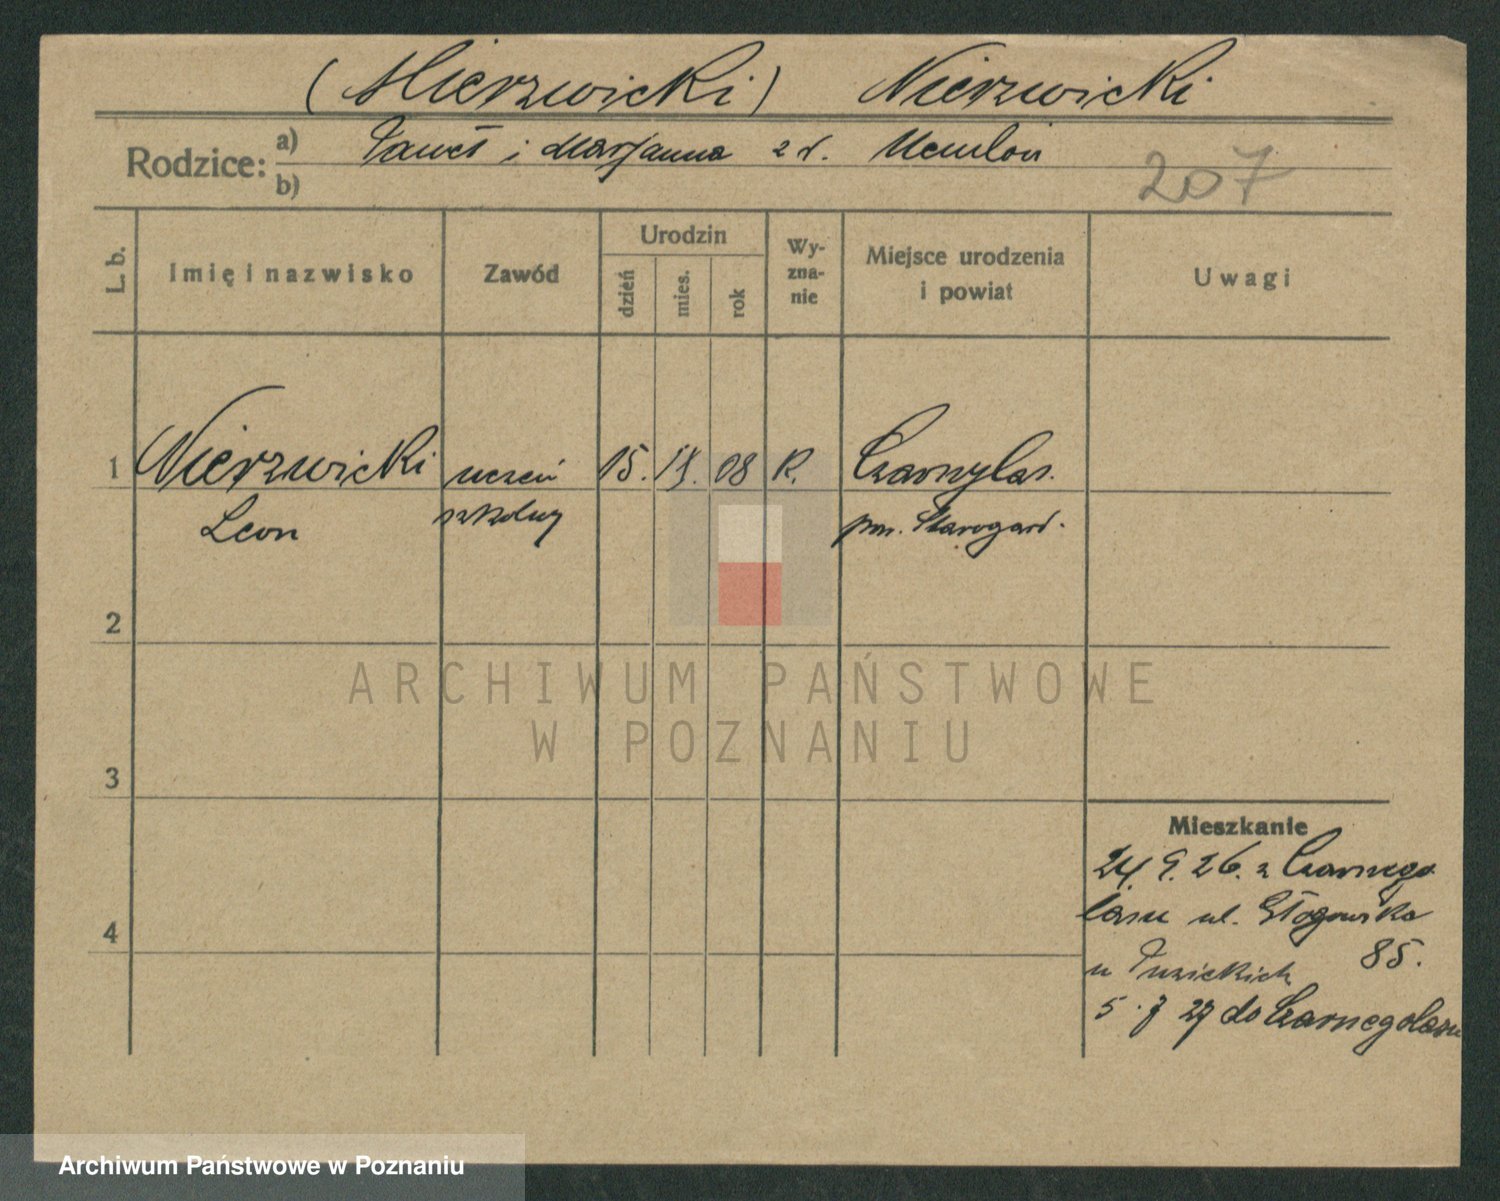 (Mierzwicki) Nierzwicki
Rodzice: a) Paweł i Marjanna z d.
b)
207
L. b.
Imię i nazwisko
Zawód
Urodzin
dzień
mies.
rok
Wy-
zna-
nie
Miejsce urodzenia
i powiat
Uwagi
1 Nierzwicki uczeń 15. IX. 08 R. Czarnylas.
Leon szkolny pow. Starogard.
2
3
4
ARCHIWUM PAŃSTWOWE
W POZNANIU
Mieszkanie
24. 9. 26. z Czarnego
lasu ul. Głogowska
85.
u
5. 7 27 do Czarnegolasu
Archiwum Państwowe w Poznaniu